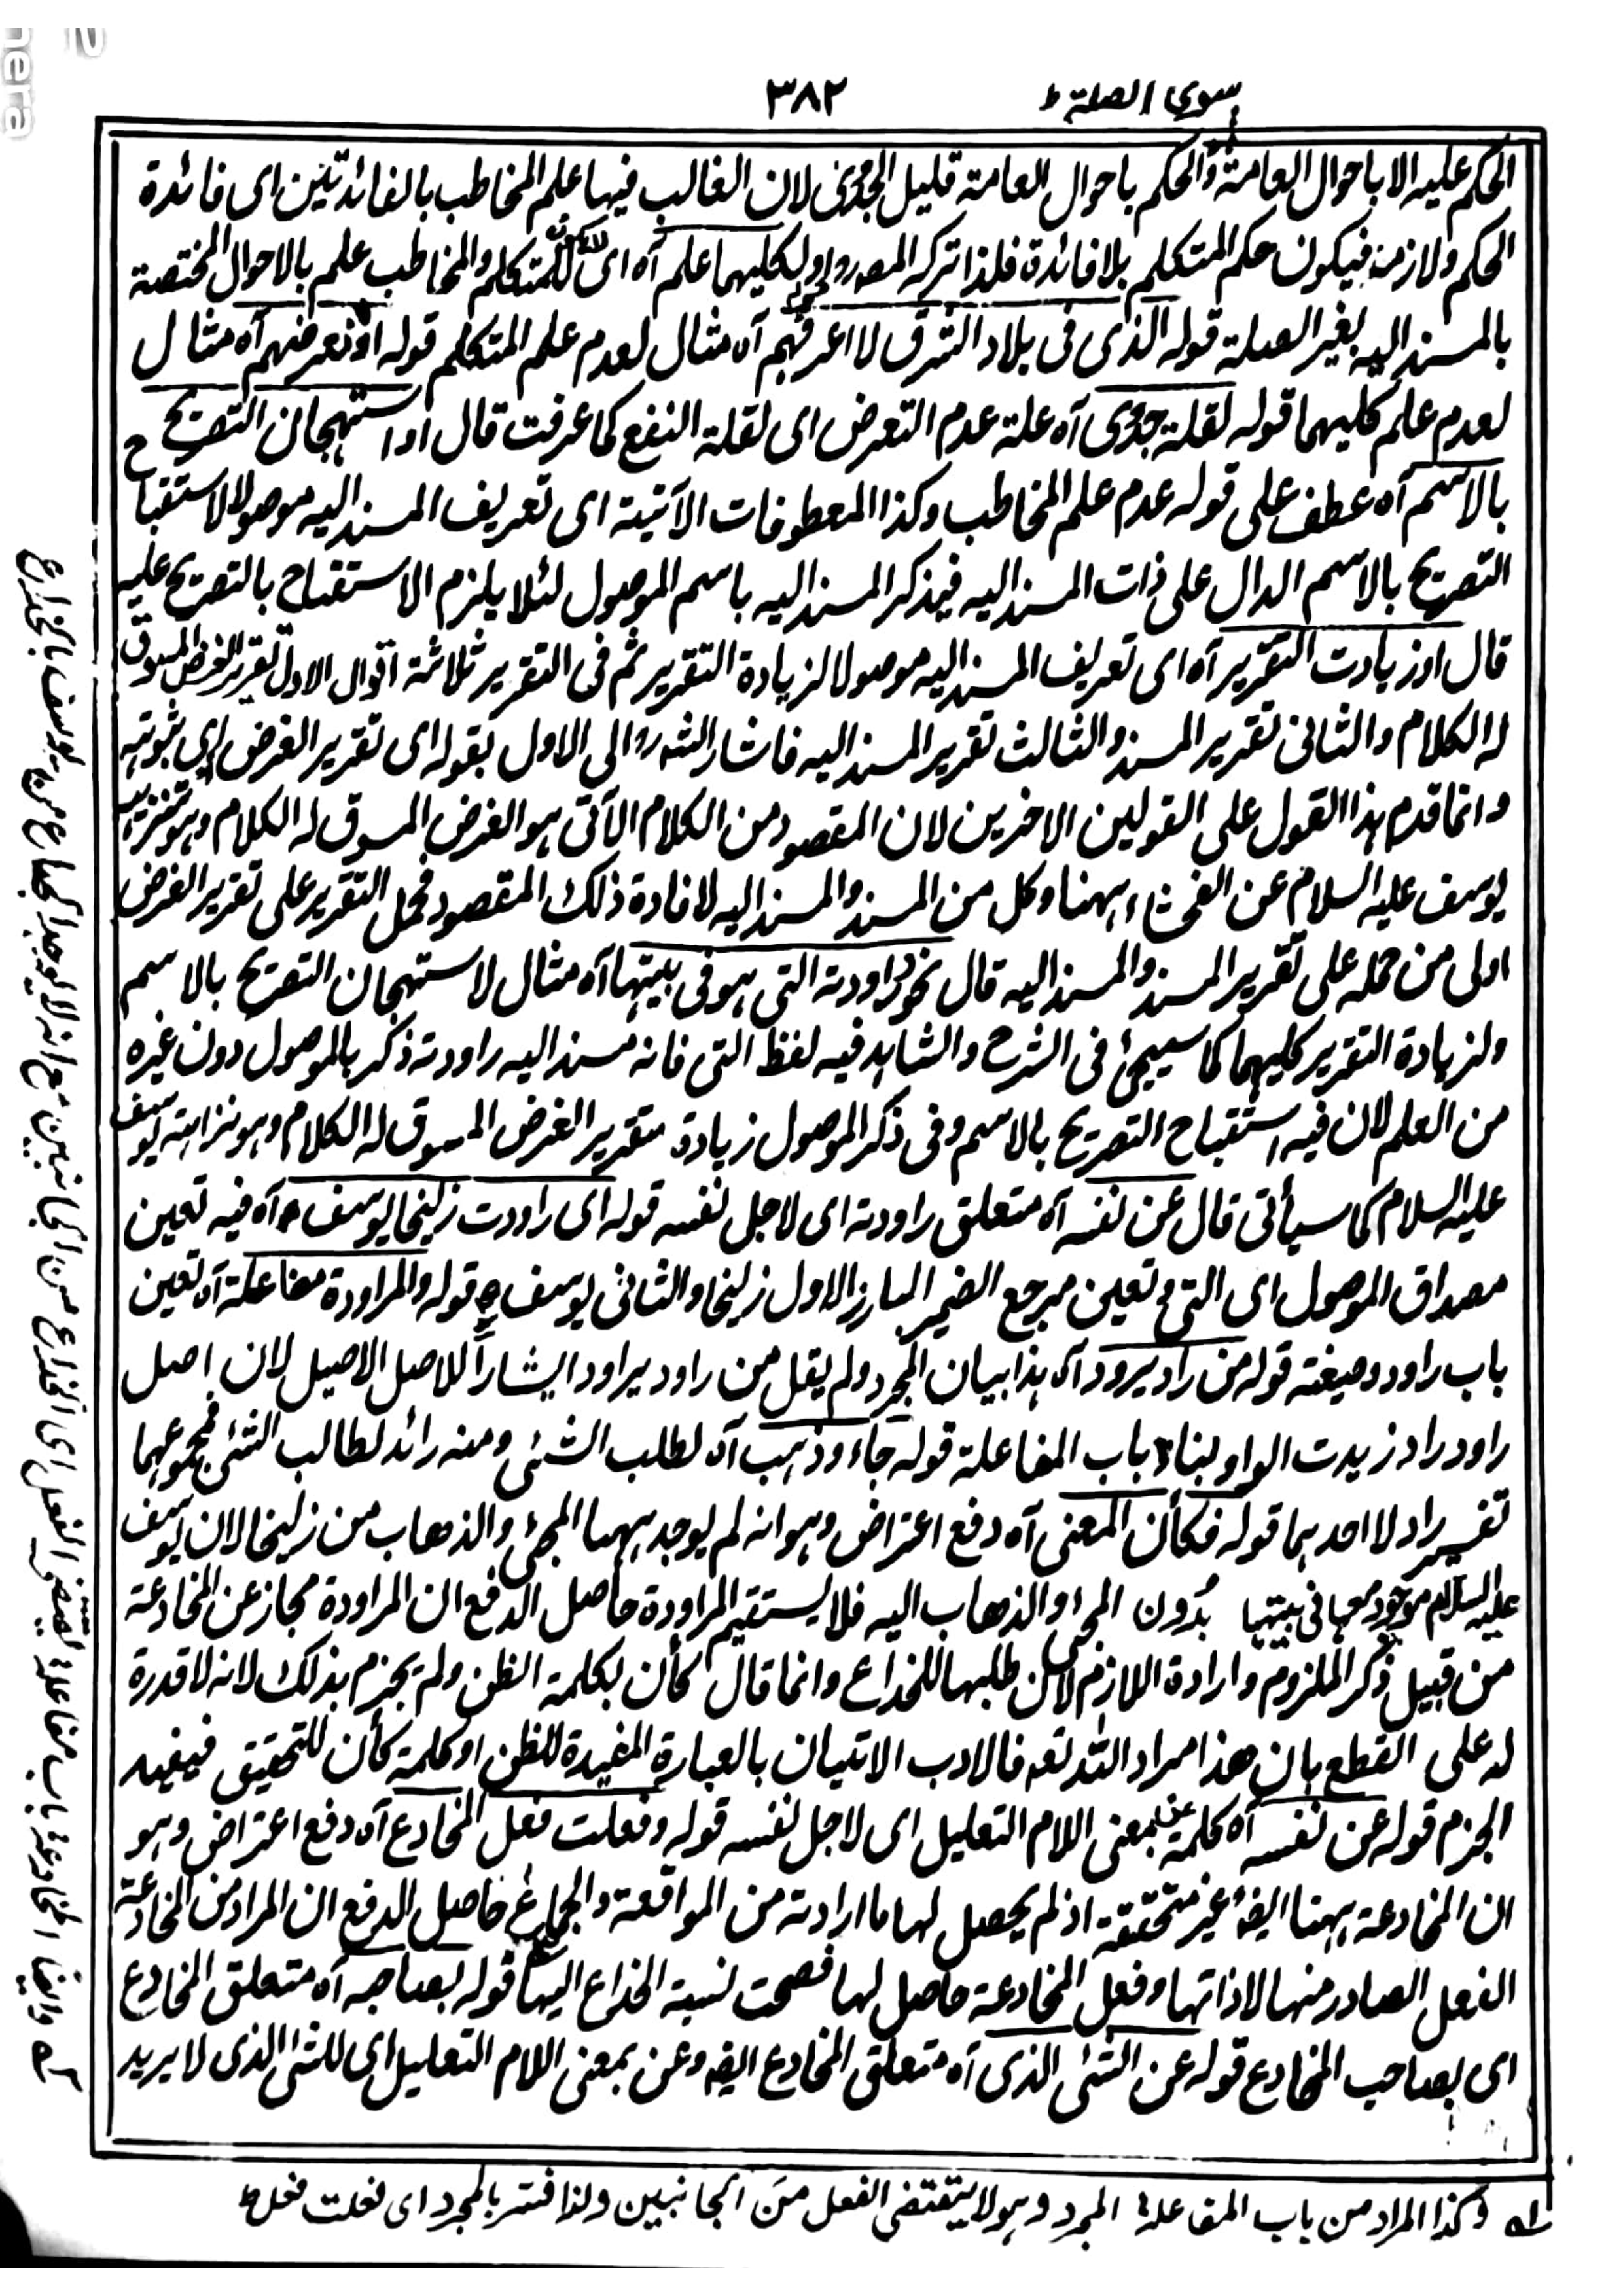 ٣٨٢
سوى الصلة ط
الحكم عليه الا باحوال العامة والحكم باحوال العامة قليل الجدوى لان الغالب فيها علم المخاطب بالفائدتين اى فائدة
الحكم ولازمه فيكون حكم المتكلم بلا فائدة فلذا تركه المصر اولكليهما علم آه اى للمتكلم والمخاطب علم بالاحوال المختصة
بالمسند اليه بغير الصلة قوله الذى فى بلاد الشرق لا اعرفهم آه مثال لعدم علم المتكلم قوله او نعرفهم آه مثال
لعدم علم كليهما قوله لقلة جدوى آه علة عدم التعرض اى لقلة النفع كما عرفت قال او استهجان التصريح
بالاسم آه عطف على قوله عدم علم المخاطب وكذا المعطوفات الآتية اى تعريف المسند اليه موصولا لاستقباح
التصريح بالاسم الدال على ذات المسند اليه فيذكر المسند اليه باسم الموصول لئلا يلزم الاستقباح بالتصريح عليه
قال او زيادت التقرير آه اى تعريف المسند اليه موصولا لزيادة التقرير ثم فى التقرير ثلاثة اقوال الاول تقرير الغرض المسوق
له الكلام والثانى تقرير المسند والثالث تقرير المسند اليه فاشار الشه رو الى الاول بقوله اى تقرير الغرض اى ثبوته
وانما قدم هذا القول على القولين الاخرين لان المقصود من الكلام الآتى هو الغرض المسوق له الكلام وهو تنزيه
يوسف عليه السلام عن الفحشاء ههنا وكل من المسند والمسند اليه لافادة ذلك المقصود فحمل التقرير على تقرير الغرض
اولى من حمله على تقرير المسند والمسند اليه قال نحو وراودته التى هو فى بيتها آه مثال لاستهجان التصريح بالاسم
ولزيادة التقرير كليهما كما سيجئ فى الشرح والشاهد فيه لفظ التى فانه مسند اليه راودته ذكر بالموصول دون غيره
من العلم لان فيه استقباح التصريح بالاسم وفى ذكر الموصول زيادة تقرير الغرض المسوق له الكلام وهو نزاهة يوسف
عليه السلام كما سيأتى قال عن نفسه آه متعلق راودته اى لاجل نفسه قوله اى راودت زليخا يوسف م آه فيه تعين
مصداق الموصول اى التى وتعين مرجع الضمير البارز الاول زليخا والثانى يوسف قوله والمراودة مفاعلة آه تعين
باب راود وصيغته قوله من راد يرود آه هذا بيان المجرد ولم يقل من راود يراود ايشاراً للاصل الاصيل لان اصل
راود راد زيدت الواو لبناء باب المفاعلة قوله جاء وذهب آه لطلب الشئى ومنه رائد لطالب الشئى فمجموعهما
تفسير راد لا احدهما قوله فكأن المعنى آه دفع اعتراض وهو انه لم يوجد ههنا المجئى والذهاب من زليخا لان يوسف
عليه السلام موجود معها فى بيتها بدون المجئ والذهاب اليه فلا يستقيم المراودة حاصل الدفع ان المراودة مجاز عن المخادعة
من قبيل ذكر الملزوم وارادة اللازم لان طلبها للخداع وانما قال كأن بكلمة الظن ولم يجزم بذلك لانه لا قدرة
له على القطع بان هذا مراد الله تعه فالادب الاتيان بالعبارة المفيدة للظن او كلمة كأن للتحقيق فيفيد
الجزم قوله عن نفسه آه كلمة عن بمعنى اللام التعليل اى لاجل نفسه قوله وفعلت فعل المخادع آه دفع اعتراض وهو
ان المخادعة ههنا ايضه غير متحققة اذ لم يحصل لها ما ارادته من المواقعة والجماع حاصل الدفع ان المراد من المخادعة
الفعل الصادر منها لا ذاتها وفعل المخادعة حاصل لها فصحت نسبة الخداع اليها قوله بصاحبه آه متعلق المخادع
اى بصاحب المخادع قوله عن الشئى الذى آه متعلق المخادع ايضه وعن بمعنى اللام التعليل اى للشئ الذى لا يريد
له وكذا المراد من باب المفاعلة المجرد وهو لا يقتضى الفعل من الجانبين ولذا فسر بالمجرد اى فعلت فعل ط